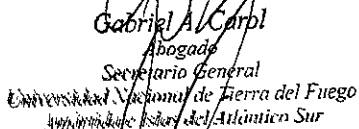 Gabriel A. Carol
Abogado
Secretario General
Universidad Nacional de Tierra del Fuego
Antártida e Islas del Atlántico Sur